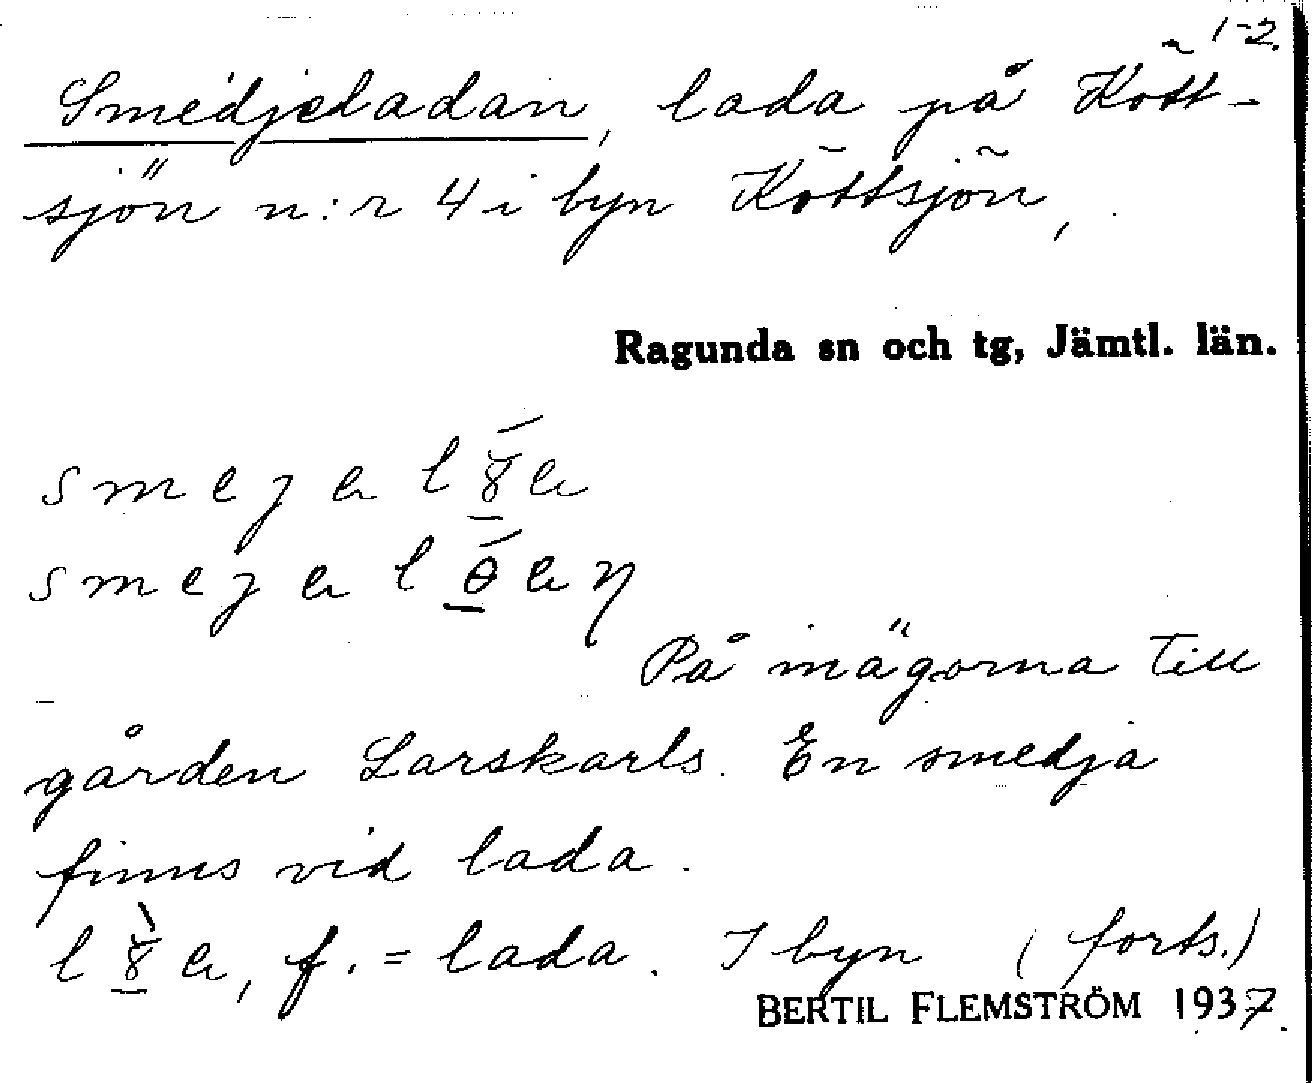 1-2.
Smedjeladan, lada på Kött-
sjön n:r 4 i byn Köttsjön,
Ragunda sn och tg, Jämtl. län.
På mägorna till
gården Larskarls. En smedja
finns vid lada.
f. = lada. I byn (forts.)
BERTIL FLEMSTRÖM 1937.